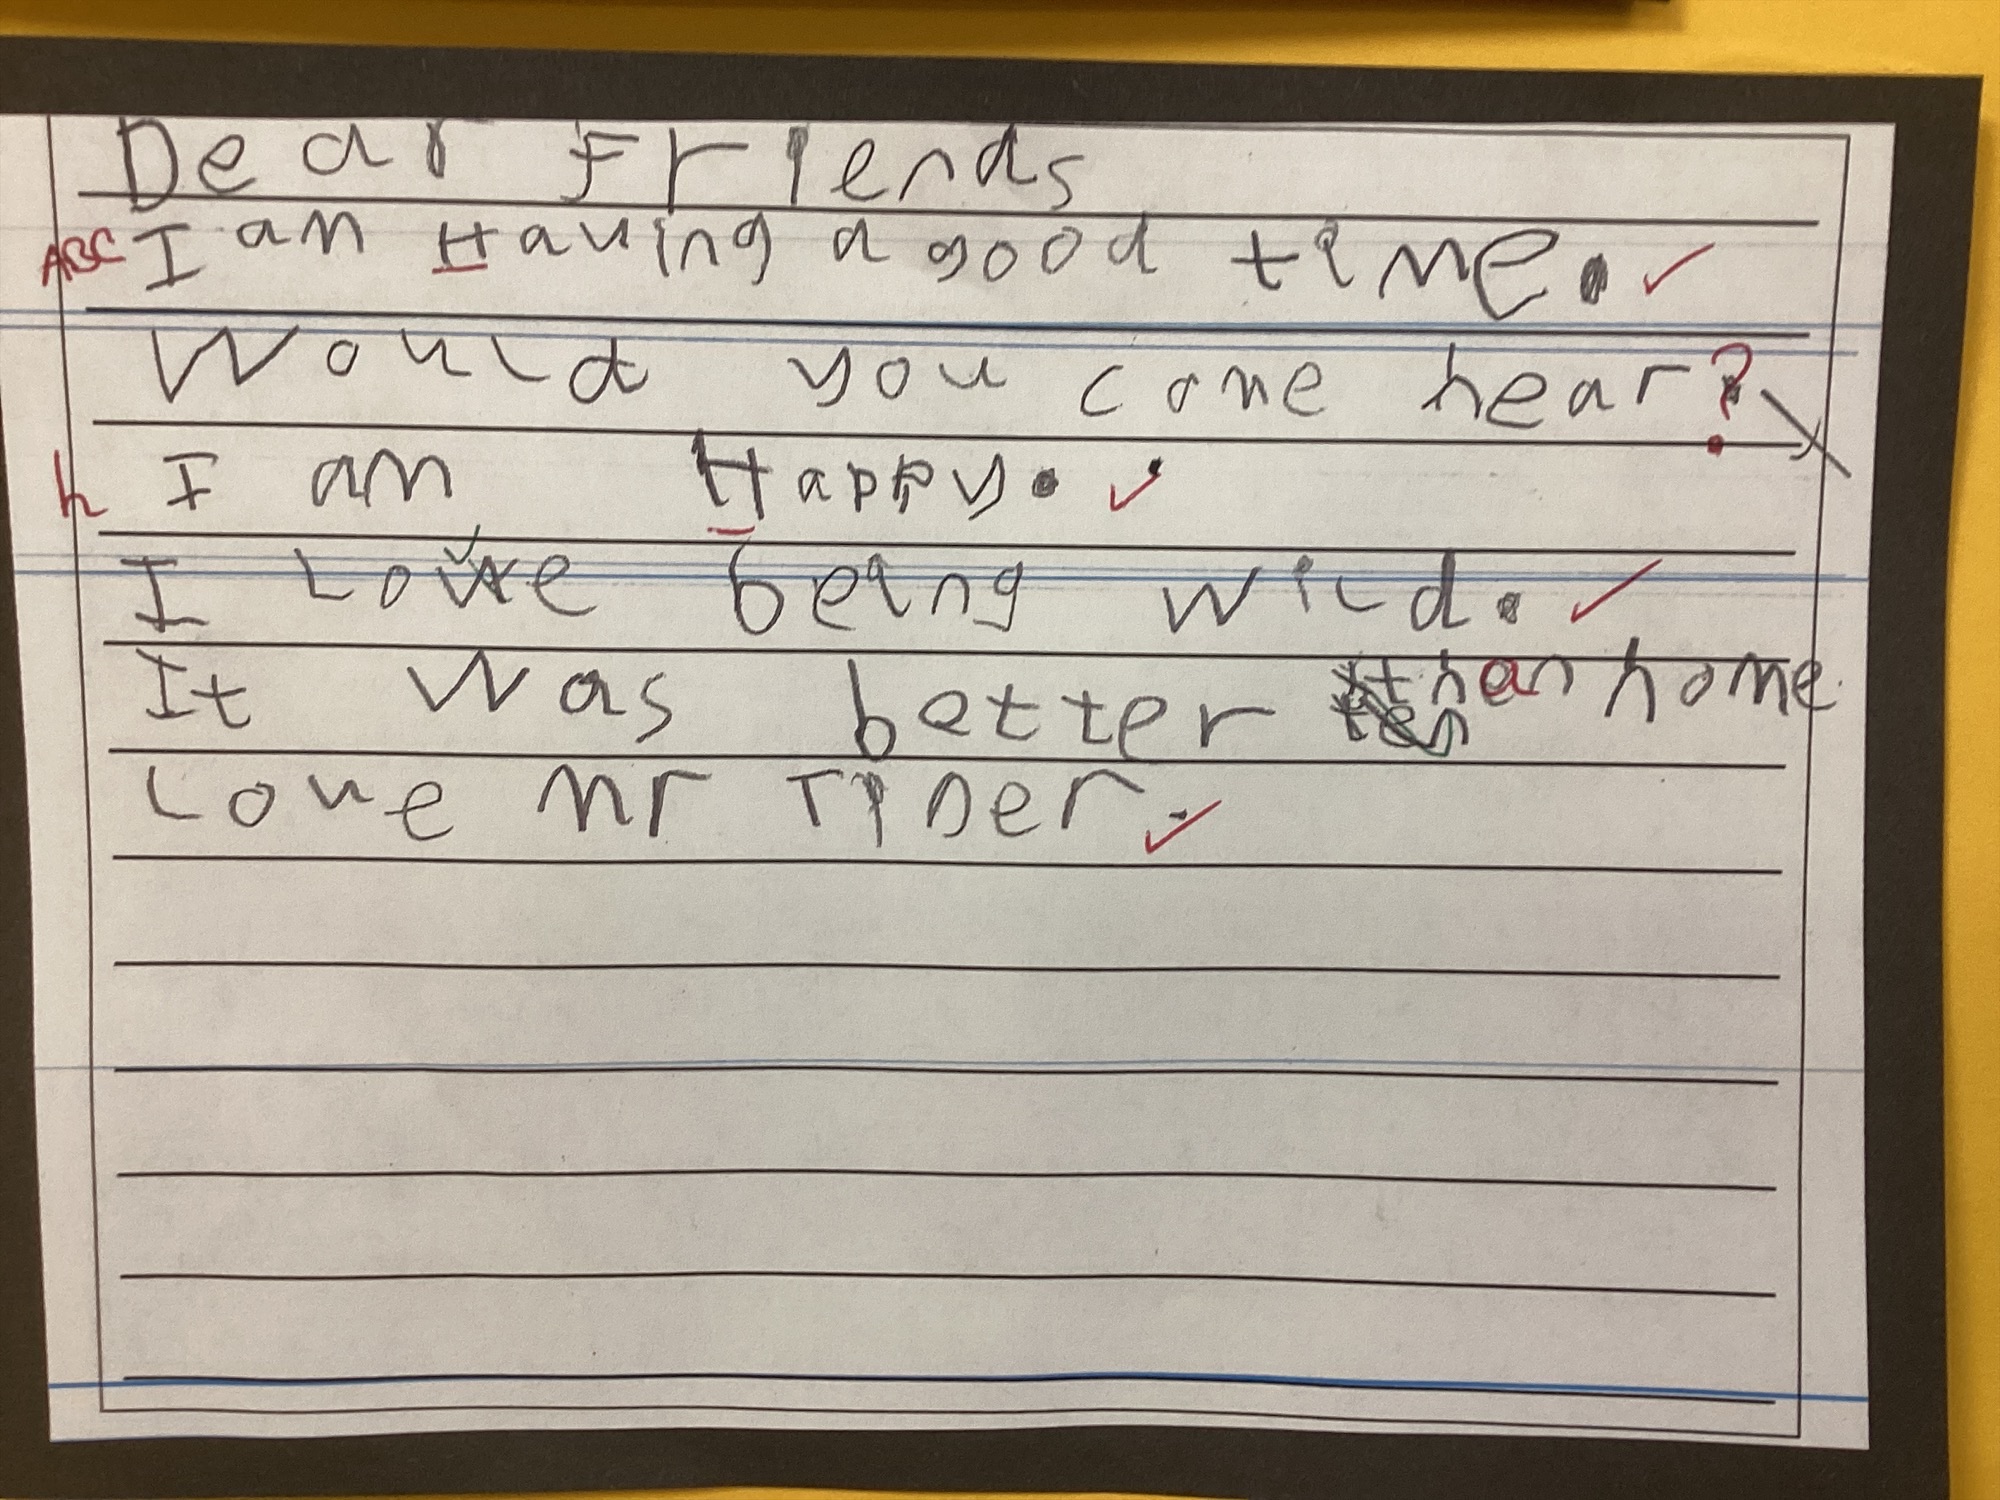 Dear Friends
ABC I am Having a good time.
Would you come hear?
h I am Happy.
I Love being wild.
It was better than home.
Love Mr Tiger.